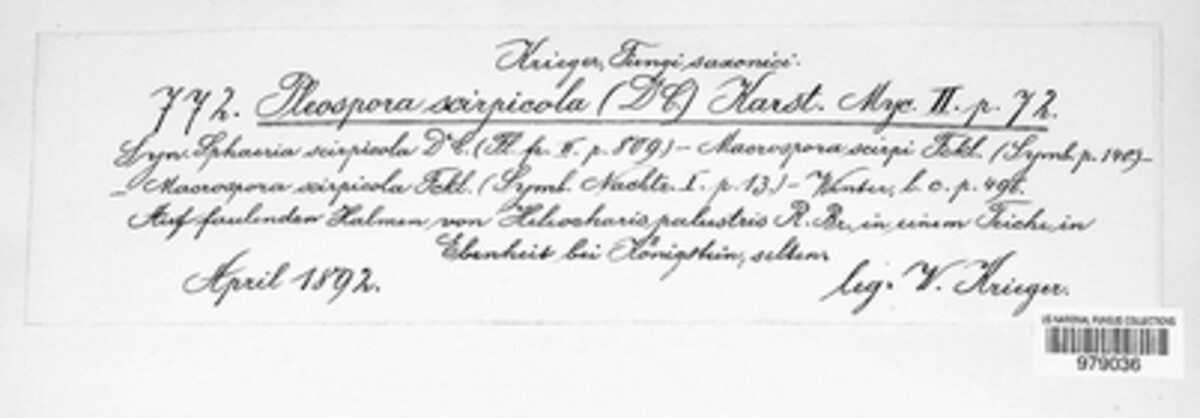 Krieger, Fungi saxonici.
772. Pleospora scirpicola (DC) Karst. Myc. II. p. 72.
Syn. Sphaeria scirpicola DC. (Fl. fr. II. p. 809) – Macrospora scirpi Fckl. (Symb. p. 140) –
– Macrospora scirpicola Fckl. (Symb. Nachtr. I. p. 13.) – Winter, l. c. p. 496.
Auf faulenden Halmen von Heleocharis palustris R. Br., in einem Teiche in
Ebenheit bei Königstein, selten.
April 1892.
leg. W. Krieger.
US NATIONAL FUNGUS COLLECTIONS
979036